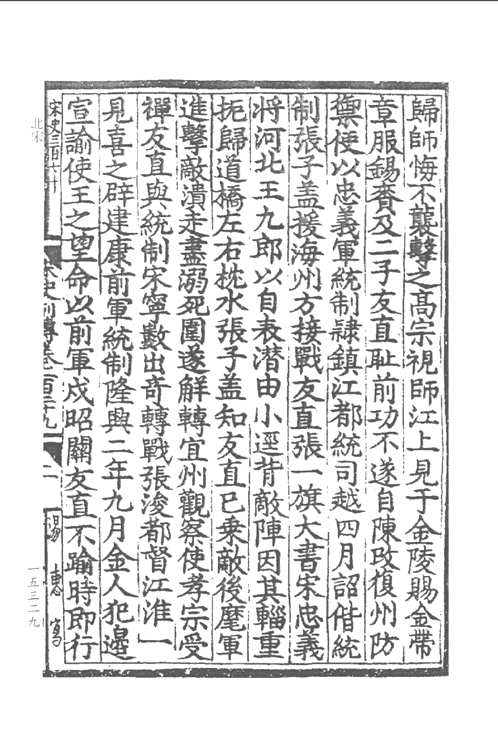 歸師悔不襲擊之高宗視師江上見于金陵賜金帶
章服錫賚及二子友直恥前功不遂自陳改復州防
禦使以忠義軍統制隸鎮江都統司越四月詔偕統
制張子盖援海州方接戰友直張一旗大書宋忠義
將河北王九郎以自表潜由小逕背敵陣因其輜重
扼歸道橋左右枕水張子盖知友直已乗敵後麾軍
進擊敵潰走盡溺死圍遂解轉宜州觀察使孝宗受
禪友直與統制宋寧數出奇轉戰張浚都督江淮一
見喜之辟建康前軍統制隆興二年九月金人犯邉
宣諭使王之望命以前軍戍昭關友直不踰時即行
宋史三百七十
北宋
宋史列傳卷一百二十九
一五三二九